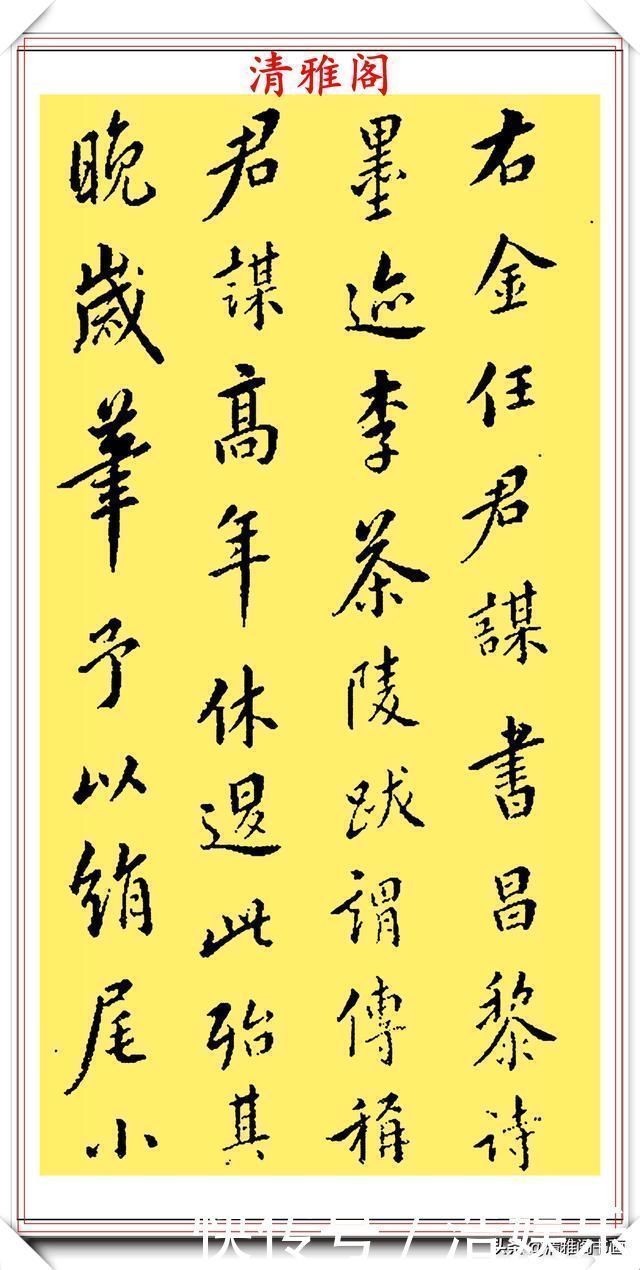 清雅阁
右金任君謀書昌黎詩
墨迹李茶陵跋謂傳稱
君謀高年休退此殆其
晚歲筆予以絹尾小
快传号/
头条@清雅阁书画